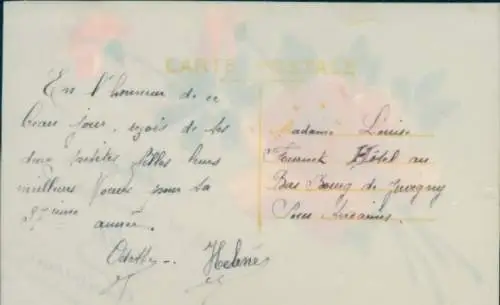 CARTE POSTALE
En l'honneur de ce
beau jour, reçois de tes
deux petites filles leurs
meilleurs Voeux pour ta
année.
Odette. Helene
Madame Louise
Hôtel au
Bas Bourg de Juvigny
Sous Andaines.